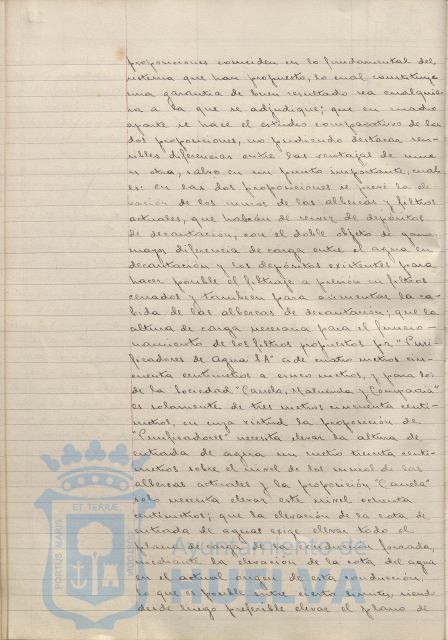 proposiciones coinciden en lo fundamental del
sistema que han propuesto, lo cual constituye
una garantía de buen resultado sea cualquie-
ra a la que se adjudique; que en cuadro
aparte se hace el estudio comparativo de las
dos proposiciones, no pudiendo destacar sen-
sibles diferencias entre las ventajas de una
u otra, salvo en un punto importante, cual
es: en las dos proposiciones se prevé la ele-
vación de los muros de las albercas y filtros
actuales, que habrán de servir de depósitos
de decantación, con el doble objeto de ganar
mayor diferencia de carga entre el agua en
decantación y los depósitos existentes para
hacer posible el filtraje a presión en filtros
cerrados y tambien para aumentar la ca-
bida de las albercas de decantación; que la
altura de carga necesaria para el funcio-
namiento de los filtros propuestos por "Puri-
ficadores de Agua S.A" es de cuatro metros cin-
cuenta centímetros a cinco metros, y para los
de la Sociedad "Canela, Maluenda y Compañía"
es solamente de tres metros cincuenta centí-
metros, en cuya virtud la proposición de
"Purificadores" necesita elevar la altura de
entrada de agua un metro treinta centí-
metros sobre el nivel de los
albercas actuales y la proposición "Canela"
solo necesita elevar este nivel ochenta
centímetros; que la elevación de la cota de
entrada de aguas exige elevar todo el
plano de carga de la conducción forzada,
mediante la elevación de la cota del agua
en el actual origen de esta conducción
lo que es posible entre cierto límite, siendo
desde luego preferible elevar el plano de
PORTUS MARIS
ET TERRÆ
CUSTODIA
Ayuntamiento de
HUELVA